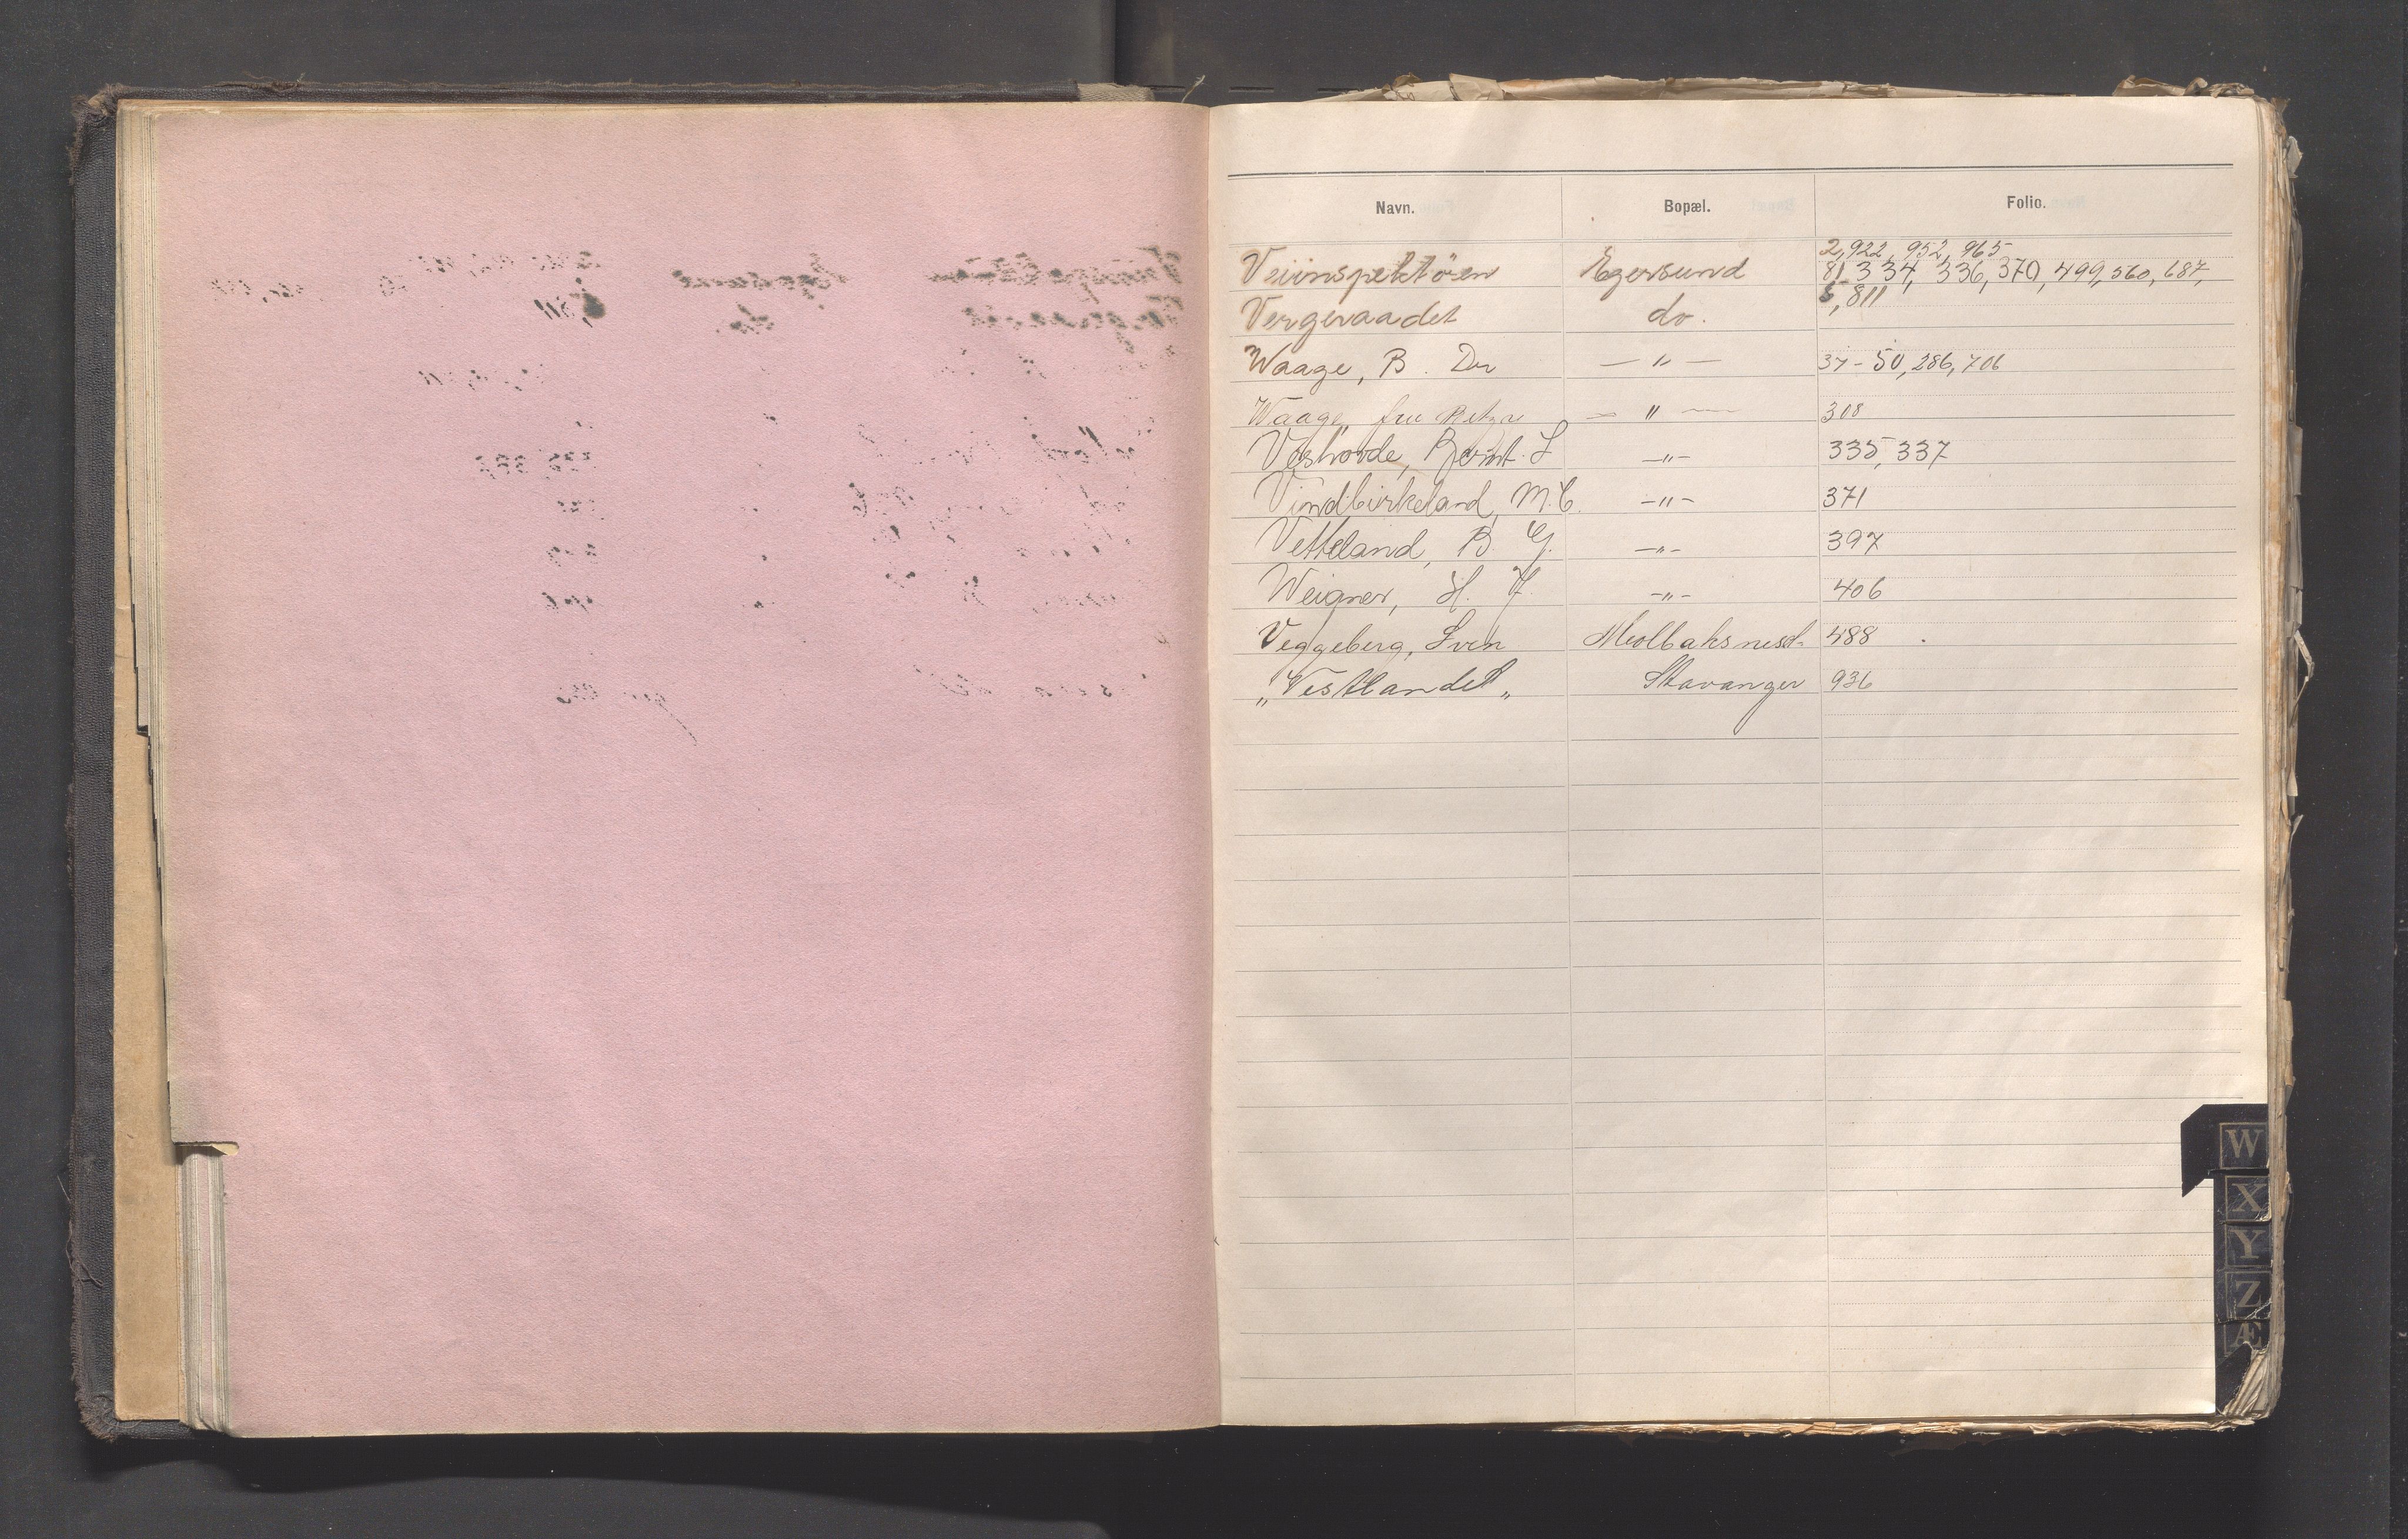 Navn. Bopæl. Folio.
2,922, 952, 965
Veiinspektøren Egersund 81, 334, 336, 370, 499, 560, 687,
Vergeraadet do. 5, 811
Waage, B. Dr — " — 37-50, 286, 706
Waage, fru — " — 308
Veshovde, Bernt. L —"— 335, 337
Vindbirkeland, M. C. —"— 371
Vetteland, B. G. —"— 397
Weigner, H. F. —"— 406
Veggeberg, Sven 488
"Vestlandet" Stavanger 936
W
X
Y
Z
Æ